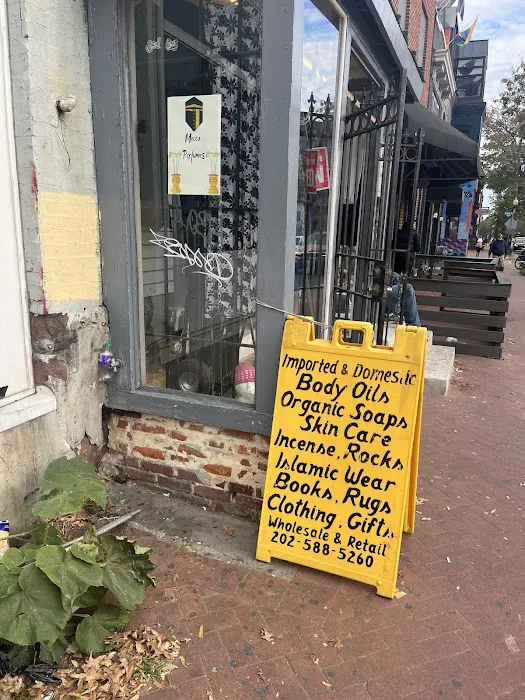 Mecca
Perfumes
Imported & Domestic
Body Oils
Organic Soaps
Skin Care
Incense, Rocks
Islamic Wear
Books, Rugs
Clothing, Gifts
Wholesale & Retail
202-588-5260